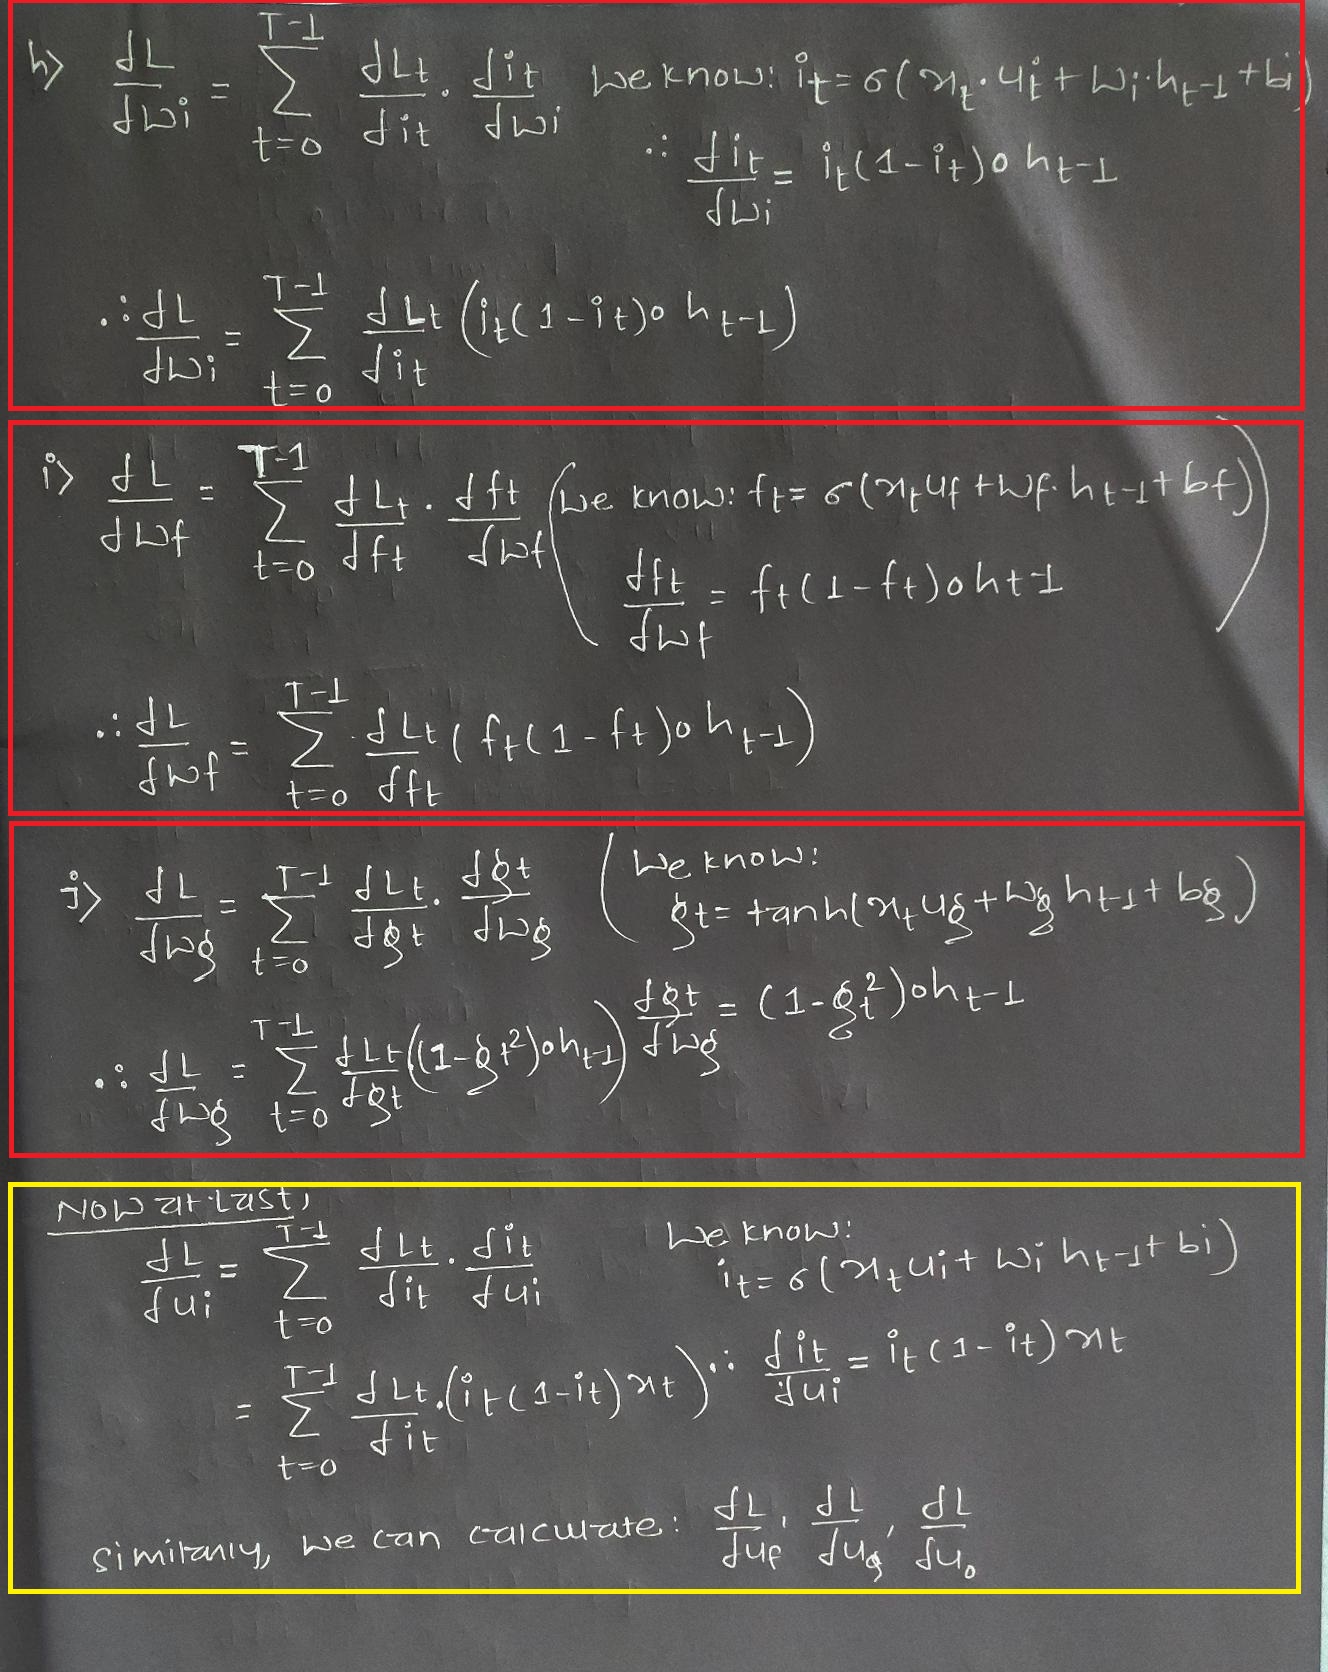 h) dL/dwi = T-1 Σ t=0 dLt/dit . dit/dwi We know: it = σ(xt.ui + wi.ht-1 + bi)
∴ dit/dwi = it(1-it)o ht-1
∴ dL/dwi = T-1 Σ t=0 dLt/dit (it(1-it)o ht-1)
i) dL/dwf = T-1 Σ t=0 dLt/dft . dft/dwf (We know: ft = σ(xtuf + wf.ht-1 + bf)
dft/dwf = ft(1-ft)o ht-1)
∴ dL/dwf = T-1 Σ t=0 dLt/dft (ft(1-ft)o ht-1)
j) dL/dwg = T-1 Σ t=0 dLt/dgt . dgt/dwg (We know:
gt = tanh(xtug + wg ht-1 + bg)
dgt/dwg = (1-gt²)oht-1
∴ dL/dwg = T-1 Σ t=0 dLt/dgt ((1-gt²)oht-1)
NOW at last,
dL/dui = T-1 Σ t=0 dLt/dit . dit/dui We know:
it = σ(xtui + wi ht-1 + bi)
= T-1 Σ t=0 dLt/dit .(it(1-it)xt) ∴ dit/dui = it(1-it)xt
similarly, we can calculate: dL/duf, dL/dug, dL/duo